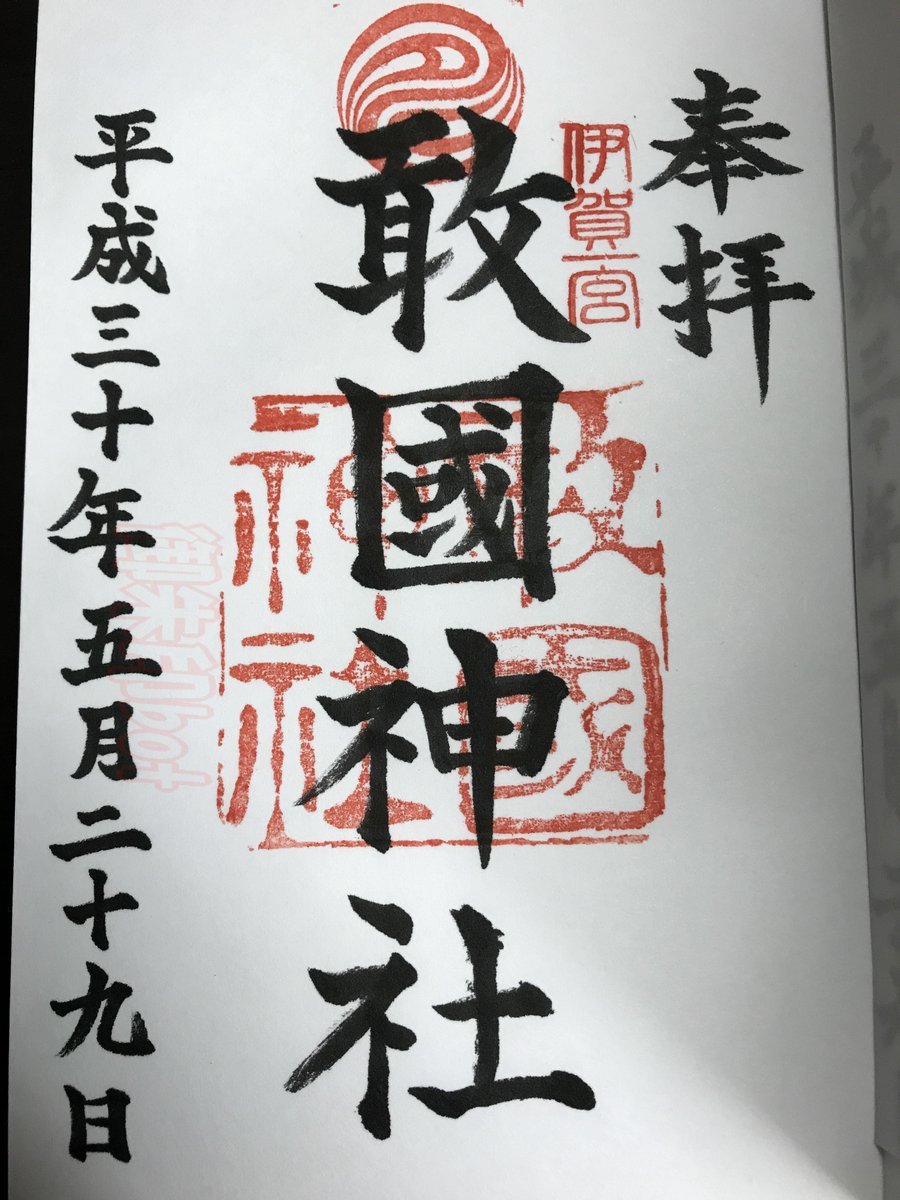 奉拝
伊賀一宮
敢國神社
敢國神社
平成三十年五月二十九日
御朱印bot